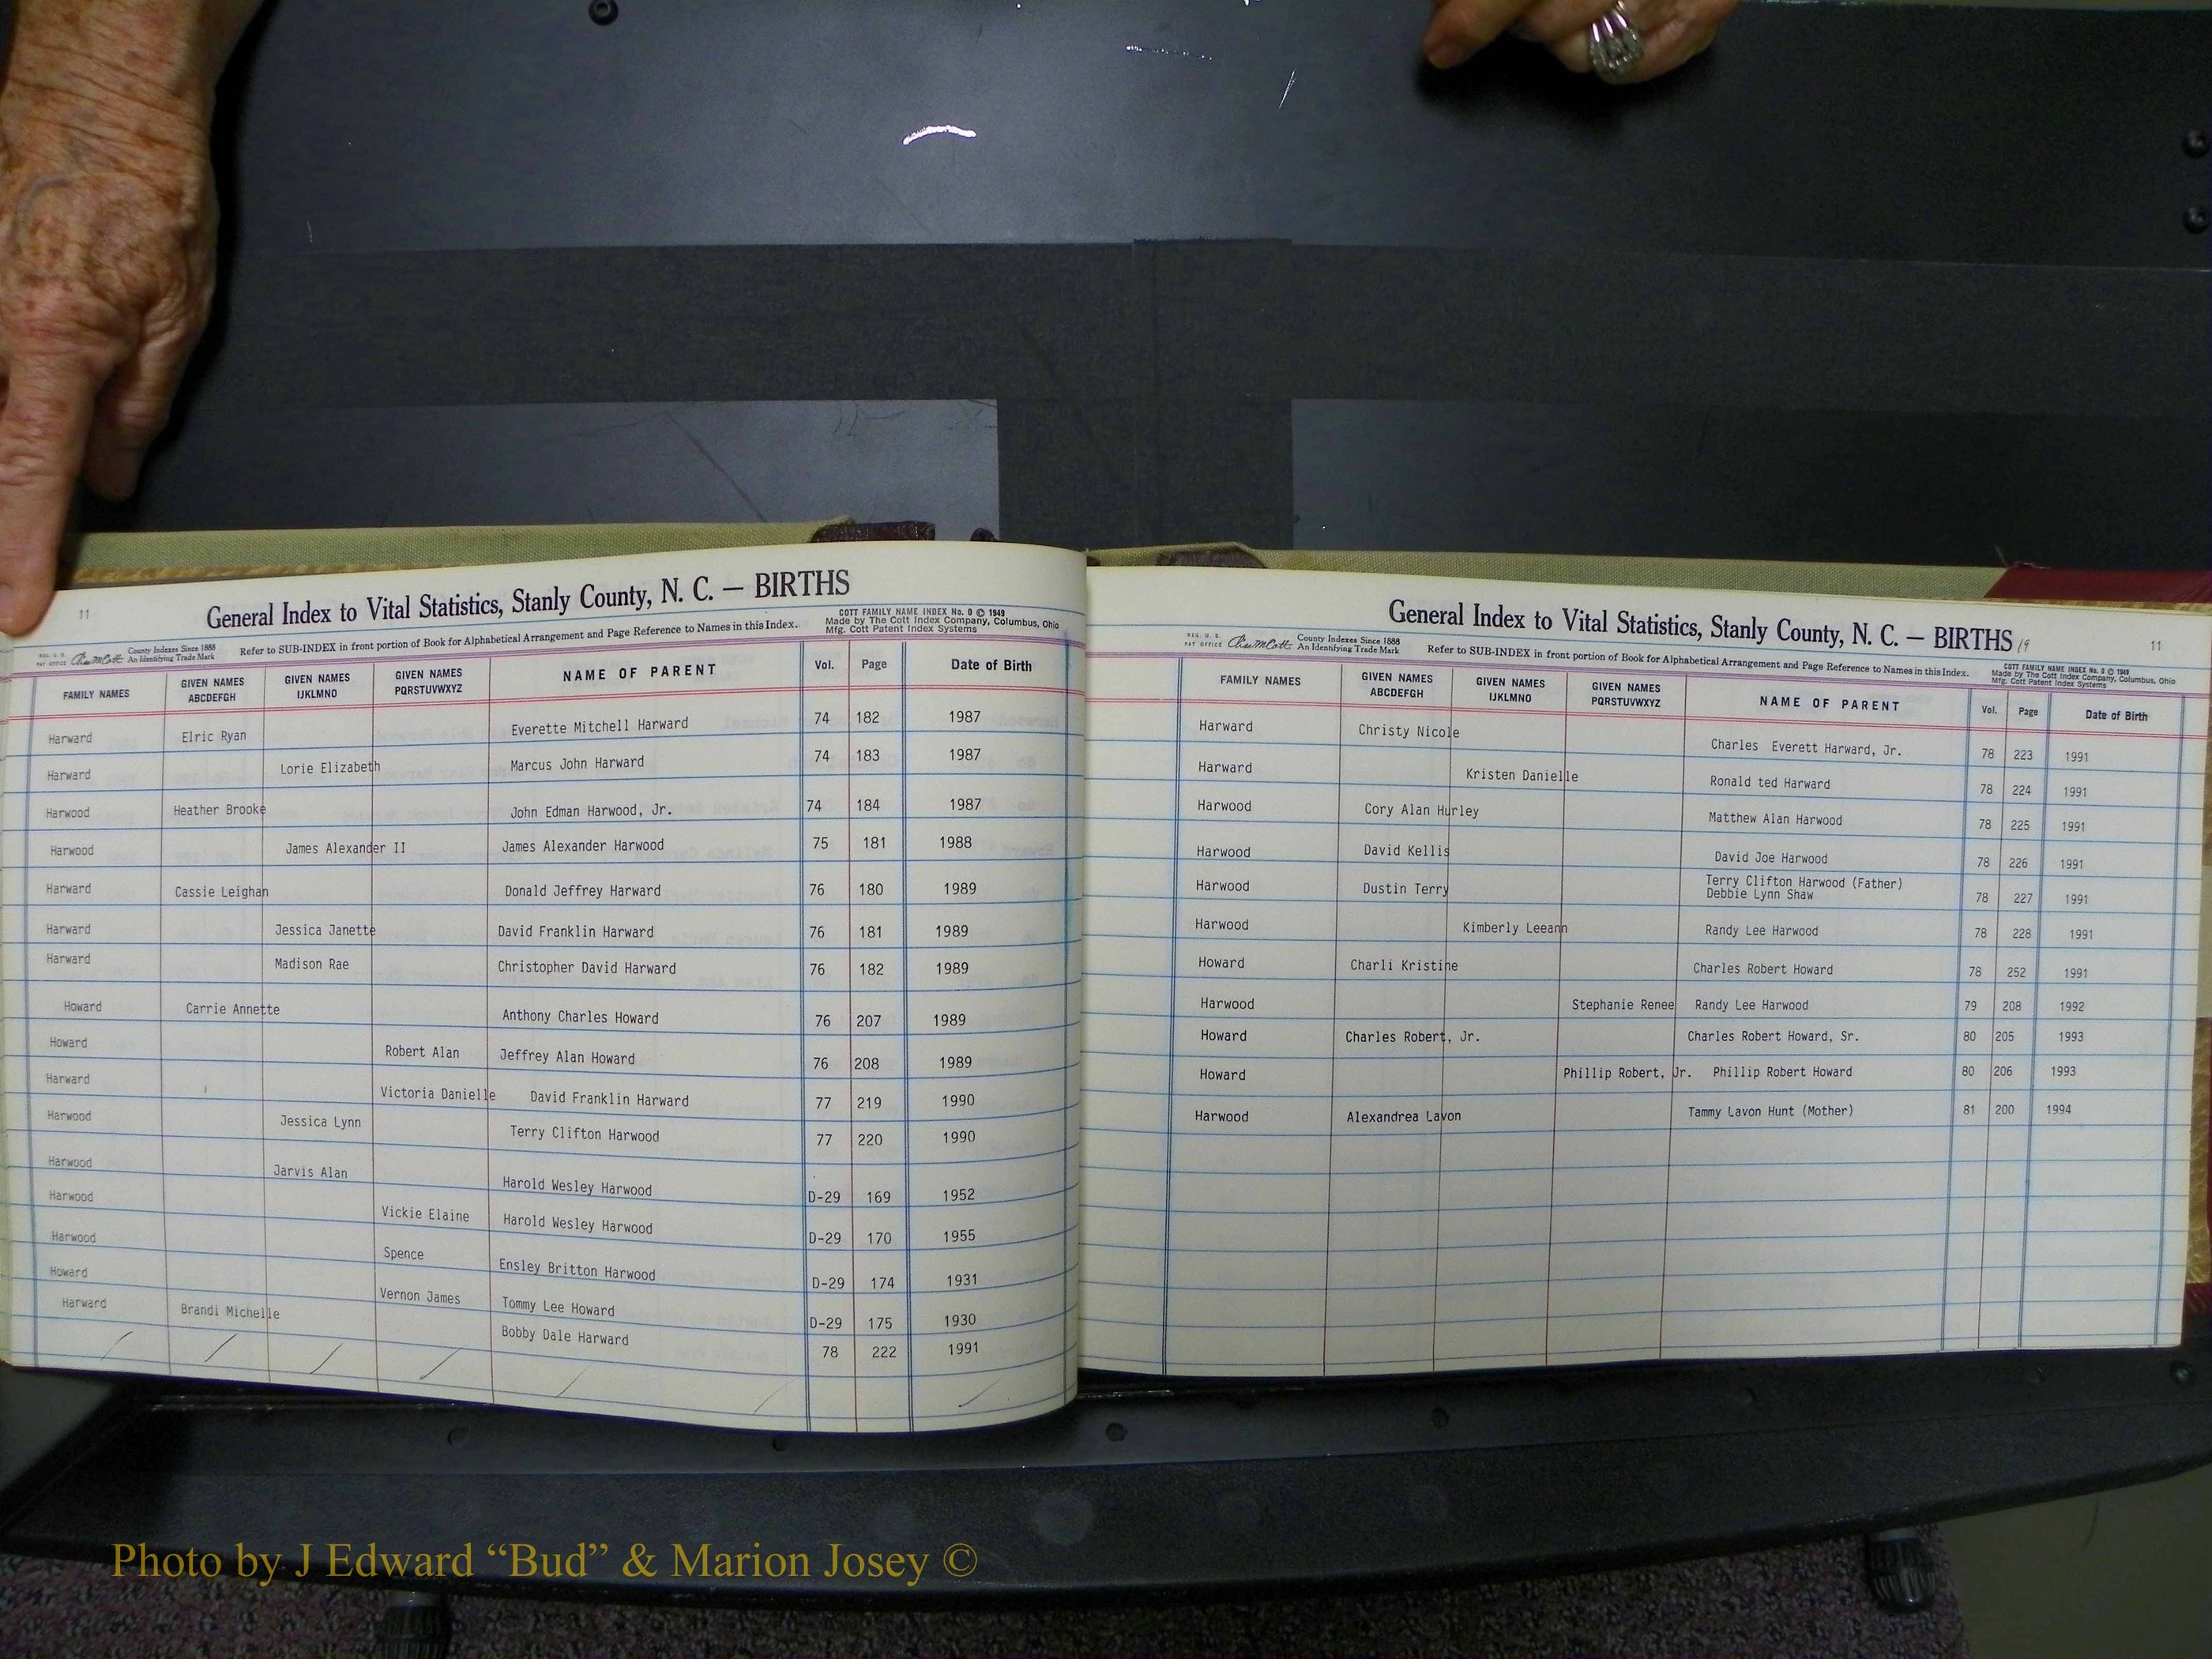 11
General Index to Vital Statistics, Stanly County, N. C. — BIRTHS
COTT FAMILY NAME INDEX No. 0 © 1949
Made by The Cott Index Company, Columbus, Ohio
Mfg. Cott Patent Index Systems
REG. U. S.
PAT OFFICE
County Indexes Since 1888
An Identifying Trade Mark
Refer to SUB-INDEX in front portion of Book for Alphabetical Arrangement and Page Reference to Names in this Index.
FAMILY NAMES GIVEN NAMES ABCDEFGH GIVEN NAMES IJKLMNO GIVEN NAMES PQRSTUVWXYZ NAME OF PARENT Vol. Page Date of Birth
Harward Elric Ryan Everette Mitchell Harward 74 182 1987
Harward Lorie Elizabeth Marcus John Harward 74 183 1987
Harwood Heather Brooke John Edman Harwood, Jr. 74 184 1987
Harwood James Alexander II James Alexander Harwood 75 181 1988
Harward Cassie Leighan Donald Jeffrey Harward 76 180 1989
Harward Jessica Janette David Franklin Harward 76 181 1989
Harward Madison Rae Christopher David Harward 76 182 1989
Howard Carrie Annette Anthony Charles Howard 76 207 1989
Howard Robert Alan Jeffrey Alan Howard 76 208 1989
Harward Victoria Danielle David Franklin Harward 77 219 1990
Harwood Jessica Lynn Terry Clifton Harwood 77 220 1990
Harwood Jarvis Alan Harold Wesley Harwood D-29 169 1952
Harwood Vickie Elaine Harold Wesley Harwood D-29 170 1955
Harwood Spence Ensley Britton Harwood D-29 174 1931
Howard Vernon James Tommy Lee Howard D-29 175 1930
Harward Brandi Michelle Bobby Dale Harward 78 222 1991
General Index to Vital Statistics, Stanly County, N. C. — BIRTHS 19
11
REG. U. S.
PAT OFFICE
County Indexes Since 1888
An Identifying Trade Mark
Refer to SUB-INDEX in front portion of Book for Alphabetical Arrangement and Page Reference to Names in this Index.
COTT FAMILY NAME INDEX No. 0 © 1949
Made by The Cott Index Company, Columbus, Ohio
Mfg. Cott Patent Index Systems
FAMILY NAMES GIVEN NAMES ABCDEFGH GIVEN NAMES IJKLMNO GIVEN NAMES PQRSTUVWXYZ NAME OF PARENT Vol. Page Date of Birth
Harward Christy Nicole Charles Everett Harward, Jr. 78 223 1991
Harward Kristen Danielle Ronald ted Harward 78 224 1991
Harwood Cory Alan Hurley Matthew Alan Harwood 78 225 1991
Harwood David Kellis David Joe Harwood 78 226 1991
Harwood Dustin Terry Terry Clifton Harwood (Father)
Debbie Lynn Shaw 78 227 1991
Harwood Kimberly Leeann Randy Lee Harwood 78 228 1991
Howard Charli Kristine Charles Robert Howard 78 252 1991
Harwood Stephanie Renee Randy Lee Harwood 79 208 1992
Howard Charles Robert, Jr. Charles Robert Howard, Sr. 80 205 1993
Howard Phillip Robert, Jr. Phillip Robert Howard 80 206 1993
Harwood Alexandrea Lavon Tammy Lavon Hunt (Mother) 81 200 1994
Photo by J Edward “Bud” & Marion Josey ©